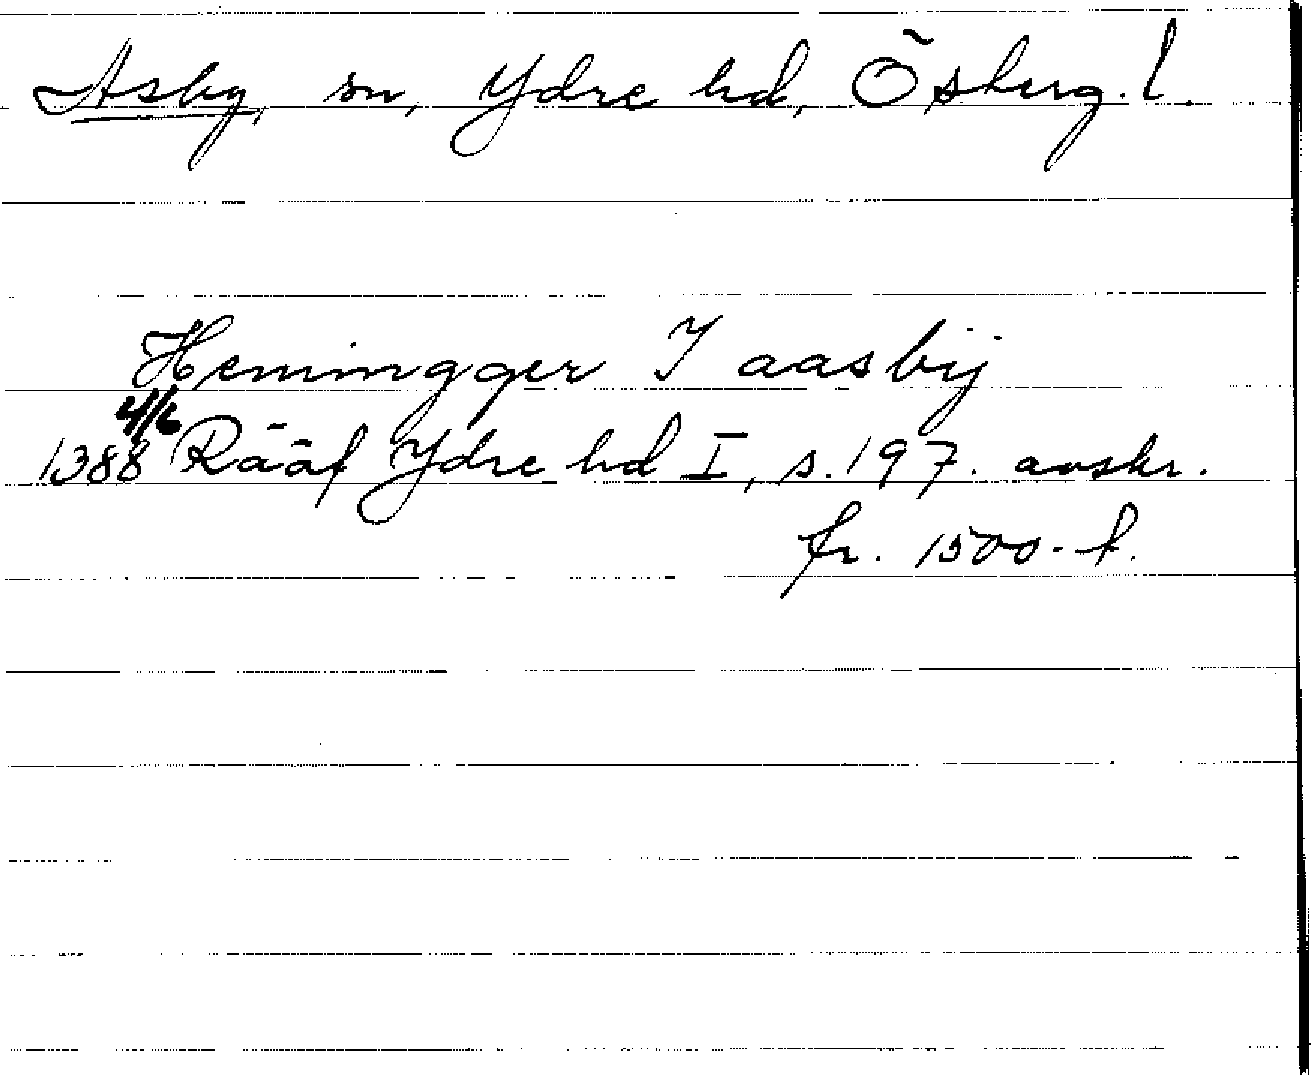 Asby, sn, Ydre hd, Ösberg. l.
Hemingger I aasbij
4/6
1388 Rääf Ydre hd I, s. 197. avskr.
fr. 1500-t.